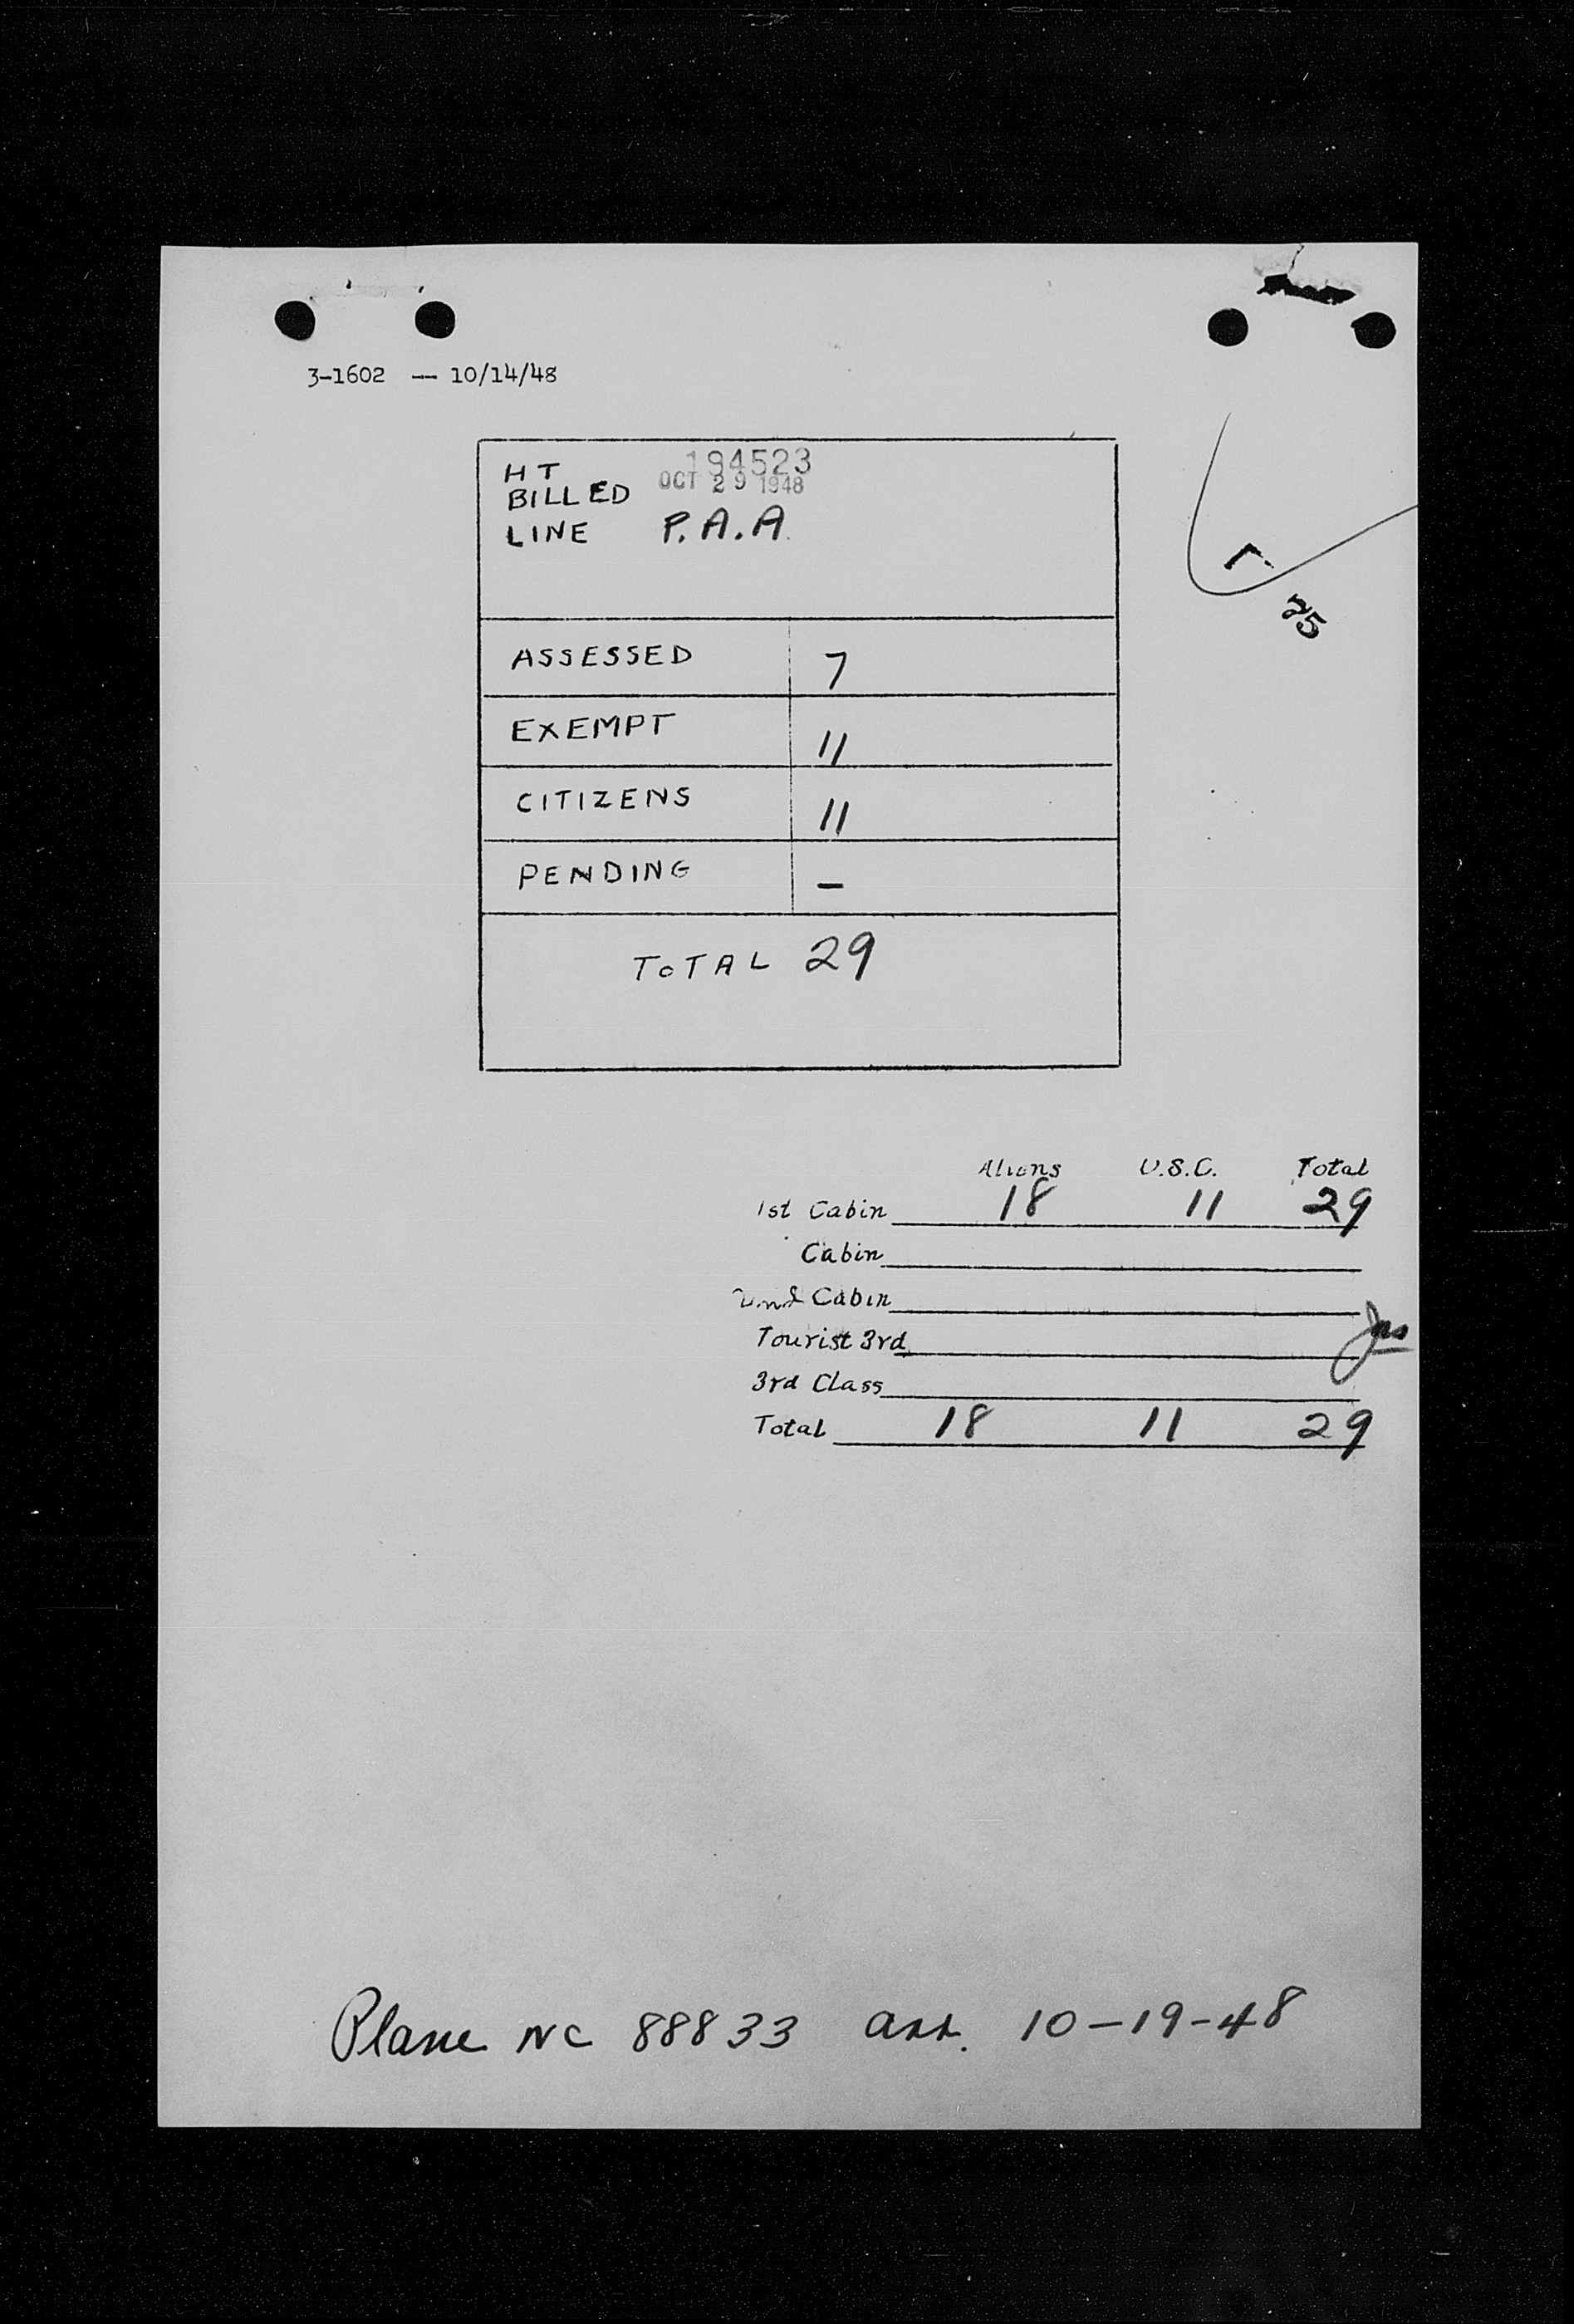 3-1602 — 10/14/48
HT 194523
BILLED OCT 29 1948
LINE P.A.A.
25
ASSESSED 7
EXEMPT 11
CITIZENS 11
PENDING —
TOTAL 29
Aliens U.S.C. Total
1st Cabin 18 11 29
Cabin
2nd Cabin
Tourist 3rd
3rd Class
Total 18 11 29
Plane NC 88833 arr. 10-19-48